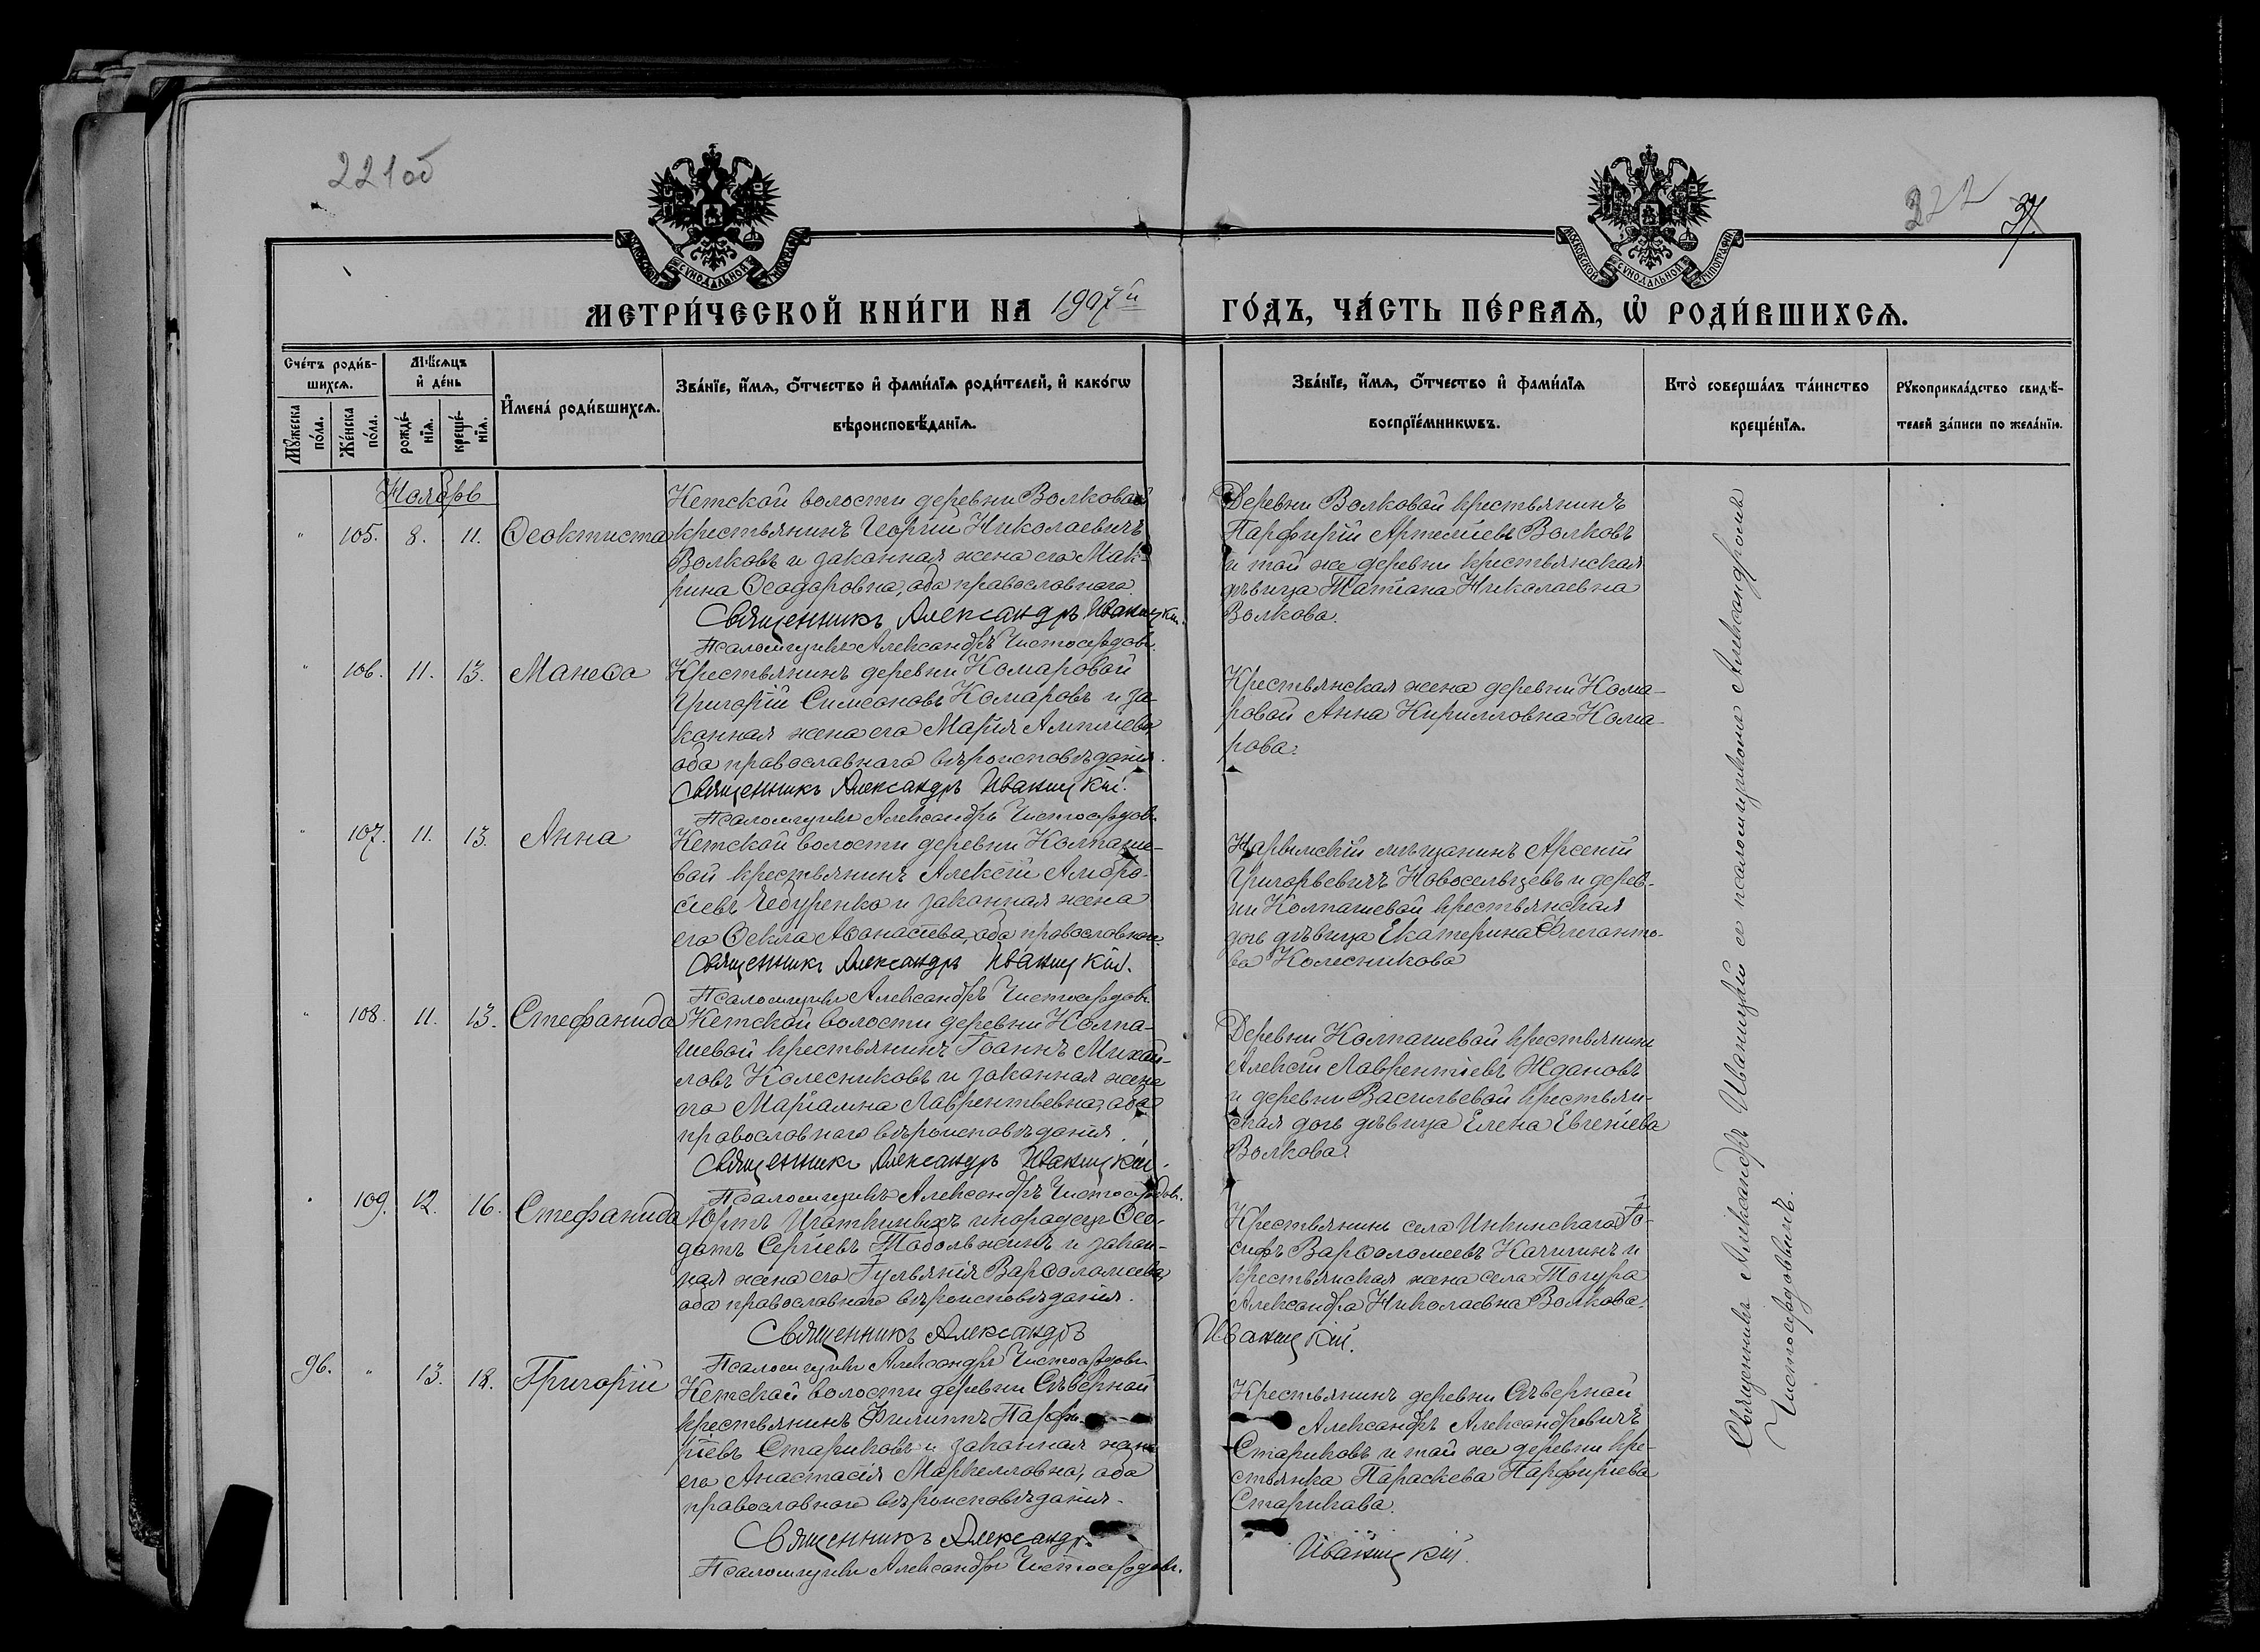 221об
222
37
МОСКОВСКОЙ СѴНОДАЛЬНОЙ ТИПОГРАФІИ
МОСКОВСКОЙ СѴНОДАЛЬНОЙ ТИПОГРАФІИ
МЕТРИ́ЧЕСКОЙ КНИ́ГИ НА 1907й ГО́ДЪ, ЧА́СТЬ ПЕ́РВАѦ, Ѡ҆ РОДИ́ВШИХСѦ.
Сче́тъ роди́в-
шихсѧ.
Мꙋ́жеска
по́ла.
Же́нска
по́ла.
Мѣ́сѧцъ
и҆ де́нь
рожде́-
нїѧ.
креще́-
нїѧ.
И҆мена̀ роди́вшихсѧ.
Зва́нїе, и҆́мѧ, ѻ҆́тчество и҆ фами́лїѧ роди́телей, и҆ како́гѡ
вѣроисповѣ́данїѧ.
Зва́нїе, и҆́мѧ, ѻ҆́тчество и҆ фами́лїѧ
воспрїе́мникѡвъ.
Кто̀ соверша́лъ та́инство
креще́нїѧ.
Рꙋкоприкла́дство свидѣ́-
телей за́писи по жела́нїю.
Ноябрь
" 105. 8. 11. Ѳеоктиста
Кетской волости деревни Волковой
крестьянинъ Георгій Николаевичъ
Волковъ и законная жена его Мак-
рина Ѳеодоровна, оба православнаго.
Священникъ Александръ Иваницкій.
Псаломщикъ Александръ Чистосердовъ.
Деревни Волковой крестьянинъ
Парфирій Артеміевъ Волковъ
и той же деревни крестьянская
дѣвица Татіана Николаевна
Волкова.
" 106. 11. 13. Манеѳа
Крестьянинъ деревни Комаровой
Григорій Симеоновъ Комаровъ и за-
конная жена его Марія
оба православнаго вѣроисповѣданія.
Священникъ Александръ Иваницкій.
Псаломщикъ Александръ Чистосердовъ.
Крестьянская жена деревни Кома-
ровой Анна Кирилловна Кома-
рова.
" 107. 11. 13. Анна
Кетской волости деревни Колпаше-
вой крестьянинъ Алексій Амвро-
сіевъ Чебуренко и законная жена
его Ѳекла Аѳанасіева, оба православнаго
Священникъ Александръ Иваницкій.
Псаломщикъ Александръ Чистосердовъ.
Нарымскій мѣщанинъ Арсеній
Григорьевичъ Новосельцевъ и дерев-
ни Колпашевой крестьянская
дочь дѣвица Екатерина Флегонто-
ва Колесникова
" 108. 11. 13. Стефанида
Кетской волости деревни Колпа-
шевой крестьянинъ Іоаннъ Михай-
ловъ Колесниковъ и законная жена
его Маріамна Лаврентьевна, оба
православнаго вѣроисповѣданія.
Священникъ Александръ Иваницкій.
Псаломщикъ Александръ Чистосердовъ.
Деревни Колпашевой крестьянинъ
Алексій Лаврентіевъ Ждановъ
и деревни Васильевой крестьян-
ская дочь дѣвица Елена Евгеніева
Волкова.
" 109. 12. 16. Стефанида
Юртъ Иготкиныхъ инородецъ Ѳео-
дотъ Сергіевъ Тобольжинъ и закон-
ная жена его Іульянія Варѳоломеева,
оба православнаго вѣроисповѣданія.
Священникъ Александръ Иваницкій.
Псаломщикъ Александръ Чистосердовъ.
Крестьянинъ села Инкинскаго Іо-
сифъ Варѳоломеевъ Качигинъ и
крестьянская жена села Тогура
Александра Николаевна Волкова.
96. " 13. 18. Григорій
Кетской волости деревни Сѣверной
крестьянинъ Филиппъ Парфи-
ріевъ Стариковъ и законная жена
его Анастасія Маркелловна, оба
православнаго вѣроисповѣданія.
Священникъ Александръ Иваницкій.
Псаломщикъ Александръ Чистосердовъ.
Крестьянинъ деревни Сѣверной
Александръ Александровичъ
Стариковъ и той же деревни кре-
стьянка Параскева Парфиріева
Старикова.
Священникъ Александръ Иваницкій съ псаломщикомъ Александромъ
Чистосердовымъ.